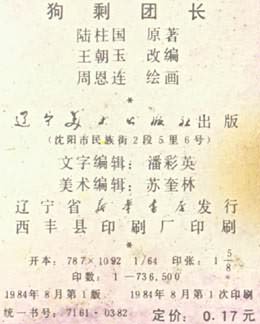 狗剩团长
陆柱国 原著
王朝玉 改编
周恩连 绘画
*
辽宁美术出版社出版
(沈阳市民族街2段5里6号)
文字编辑：潘彩英
美术编辑：苏奎林
辽宁省新华书店发行
西丰县印刷厂印刷
*
开本：787×1092 1/64 印张：1 5/8
印数：1—736,500
1984年8月第1版 1984年8月第1次印刷
统一书号：7161·0382 定价：0.17元